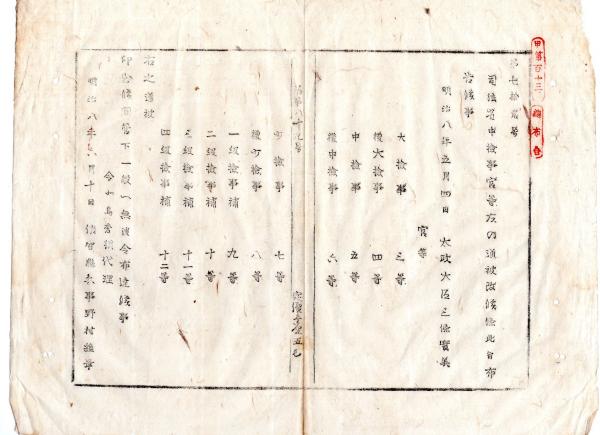 甲第百十三
布告
司法省中檢事官等左ノ通被改候條此旨布
告候事
明治八年五月四日 太政大臣三條實美
官等
大檢事 三等
權大檢事 四等
中檢事 五等
權中檢事 六等
少檢事 七等
權少檢事 八等
一級檢事補 九等
二級檢事補 十等
三級檢事補 十一等
四級檢事補 十二等
右之通被
仰出候條管下一般ヘ無洩令布達候事
代理
明治八年 月十日 縣參事野村維章